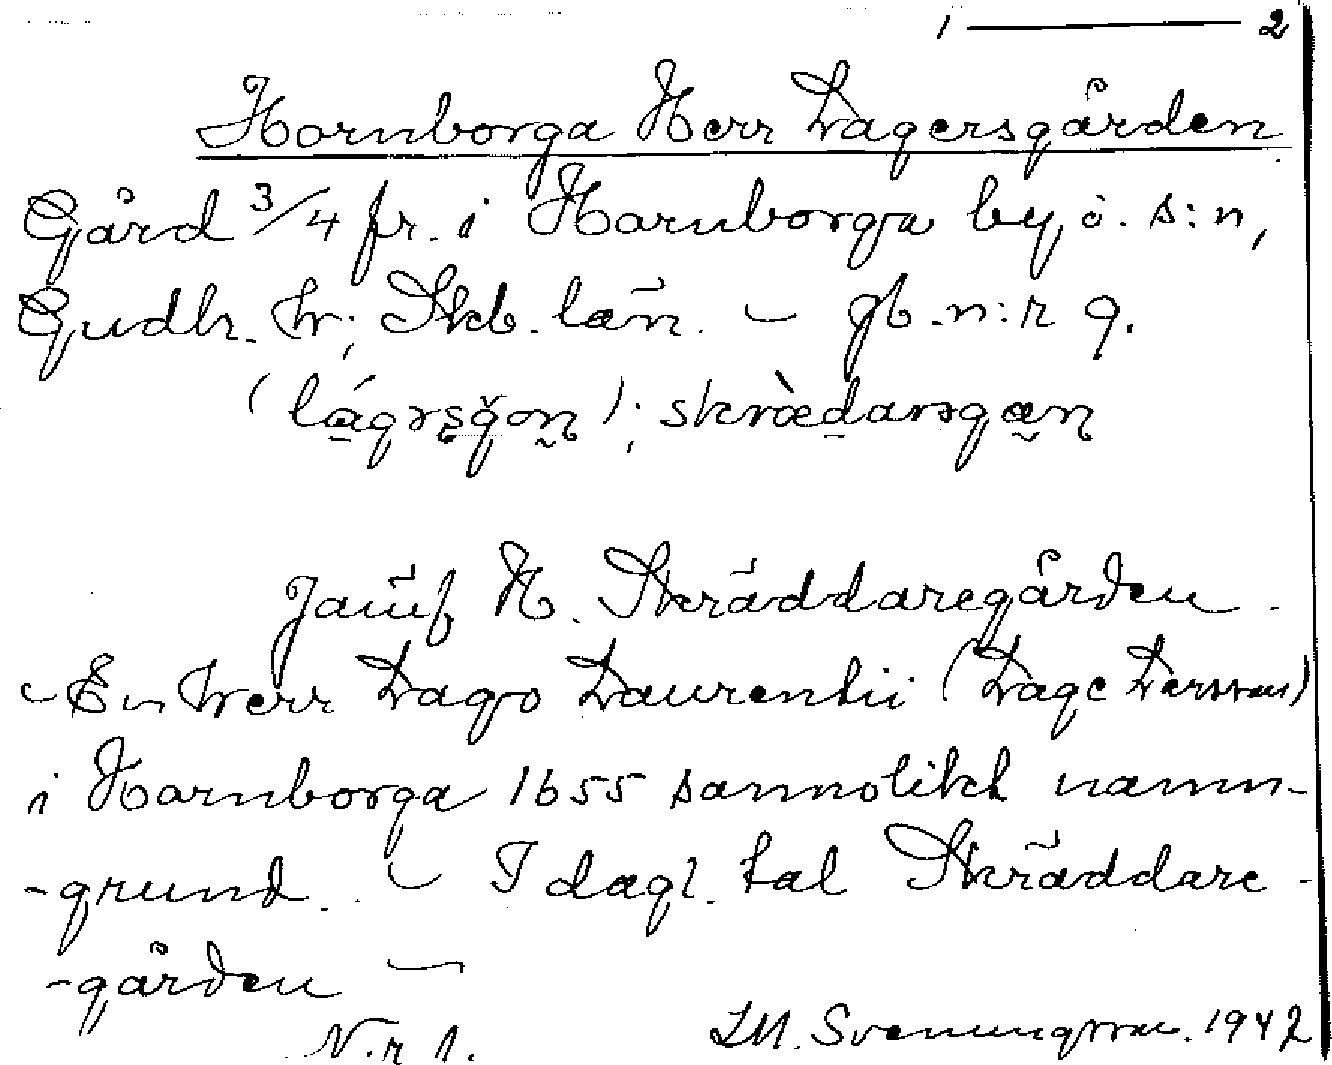 1 — 2
Hornborga Herr Lagersgården
Gård 3/4 fr. i Hornborga by, o. s:n,
Gudh. hr; Skb. län. – gb. n:r 9.
(lágərs̥g̊on̥); skrædarəgæn̥
Jämf H. Skräddaregården.
– En herr Lago Laurentii (Lage Larsson)
i Hornborga 1655 sannolikt namn-
-grund. – I dagl. tal Skräddare-
-gården –
N:r 1. I.M. Svenungsson. 1942